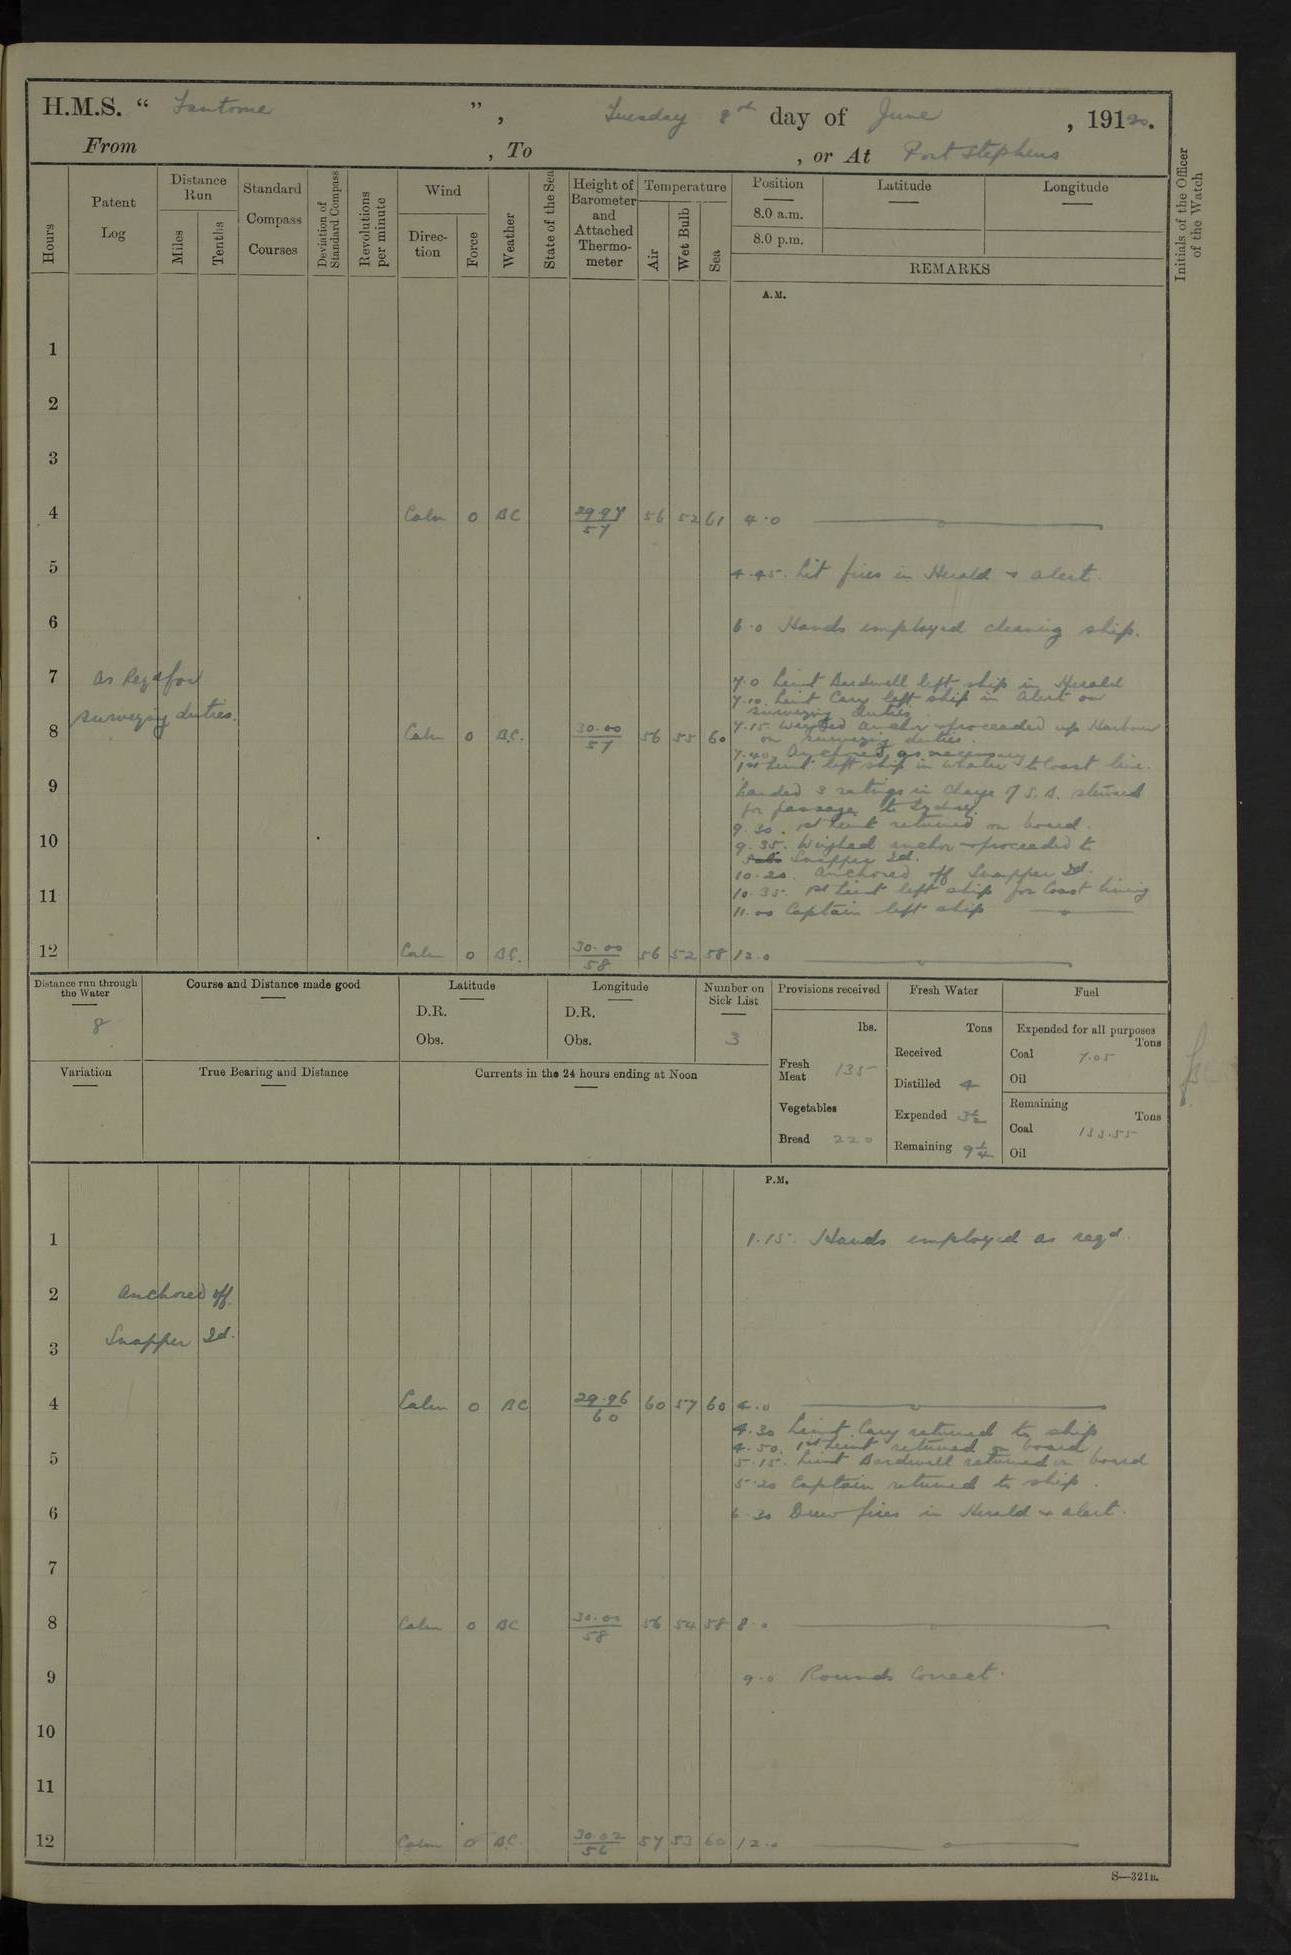 H.M.S. “ Fantome ”, Tuesday 8th day of June, 1920.
From , To , or At Port Stephens
Hours
Patent Log
Distance Run
Miles
Tenths
Standard Compass Courses
Deviation of Standard Compass
Revolutions per minute
Wind
Direction
Force
Weather
State of the Sea
Height of Barometer and Attached Thermometer
Temperature
Air
Wet Bulb
Sea
Position
8.0 a.m.
8.0 p.m.
Latitude
Longitude
REMARKS
Initials of the Officer of the Watch
A.M.
1
2
3
4 Calm 0 BC 29.97 57 56 52 61 4.0
5 4.45. Lit fires in Herald & Alert.
6 6.0 Hands employed cleaning ship.
7 As Reqd for 7.0 Lieut Bardwell left ship in Herald
7.10. Lieut Cary left ship in Alert on
surveying duties. surveying duties
8 Calm 0 B.C. 30.00 57 56 55 60 7.15. Weighed anchor & proceeded up Harbour
on surveying duties.
7.40 Anchored as necessary
1st Lieut left ship in whaler to Coast line.
9 Landed 3 ratings in charge of S.B. Steward
for passage to Sydney.
9.30. 1st Lieut returned on board.
10 9.35. Weighed anchor & proceeded to
Snapper Id.
10.20. Anchored off Snapper Id.
11 10.35. 1st Lieut left ship for Coast lining
11.00 Captain left ship
12 Calm 0 B.C. 30.00 58 56 52 58 12.0
Distance run through the Water
8
Course and Distance made good
Latitude
D.R.
Obs.
Longitude
D.R.
Obs.
Number on Sick List
3
Variation
True Bearing and Distance
Currents in the 24 hours ending at Noon
Provisions received
lbs.
Fresh Meat 135
Vegetables
Bread 220
Fresh Water
Tons
Received
Distilled 4
Expended 3½
Remaining 9¼
Fuel
Expended for all purposes
Tons
Coal 7.05
Oil
Remaining
Tons
Coal 133.55
Oil
P.M.
1 1.15. Hands employed as reqd.
2 Anchored off
3 Snapper Id.
4 Calm 0 BC 29.96 60 60 57 60 4.0
4.30 Lieut Cary returned to ship
4.50. 1st Lieut returned on board
5 5.15. Lieut Bardwell returned on board
5.20 Captain returned to ship.
6 6.30 Drew fires in Herald & Alert.
7
8 Calm 0 BC 30.00 58 56 54 58 8.0
9 9.0 Rounds Correct.
10
11
12 Calm 0 B.C. 30.02 56 57 53 60 12.0
S—321B.